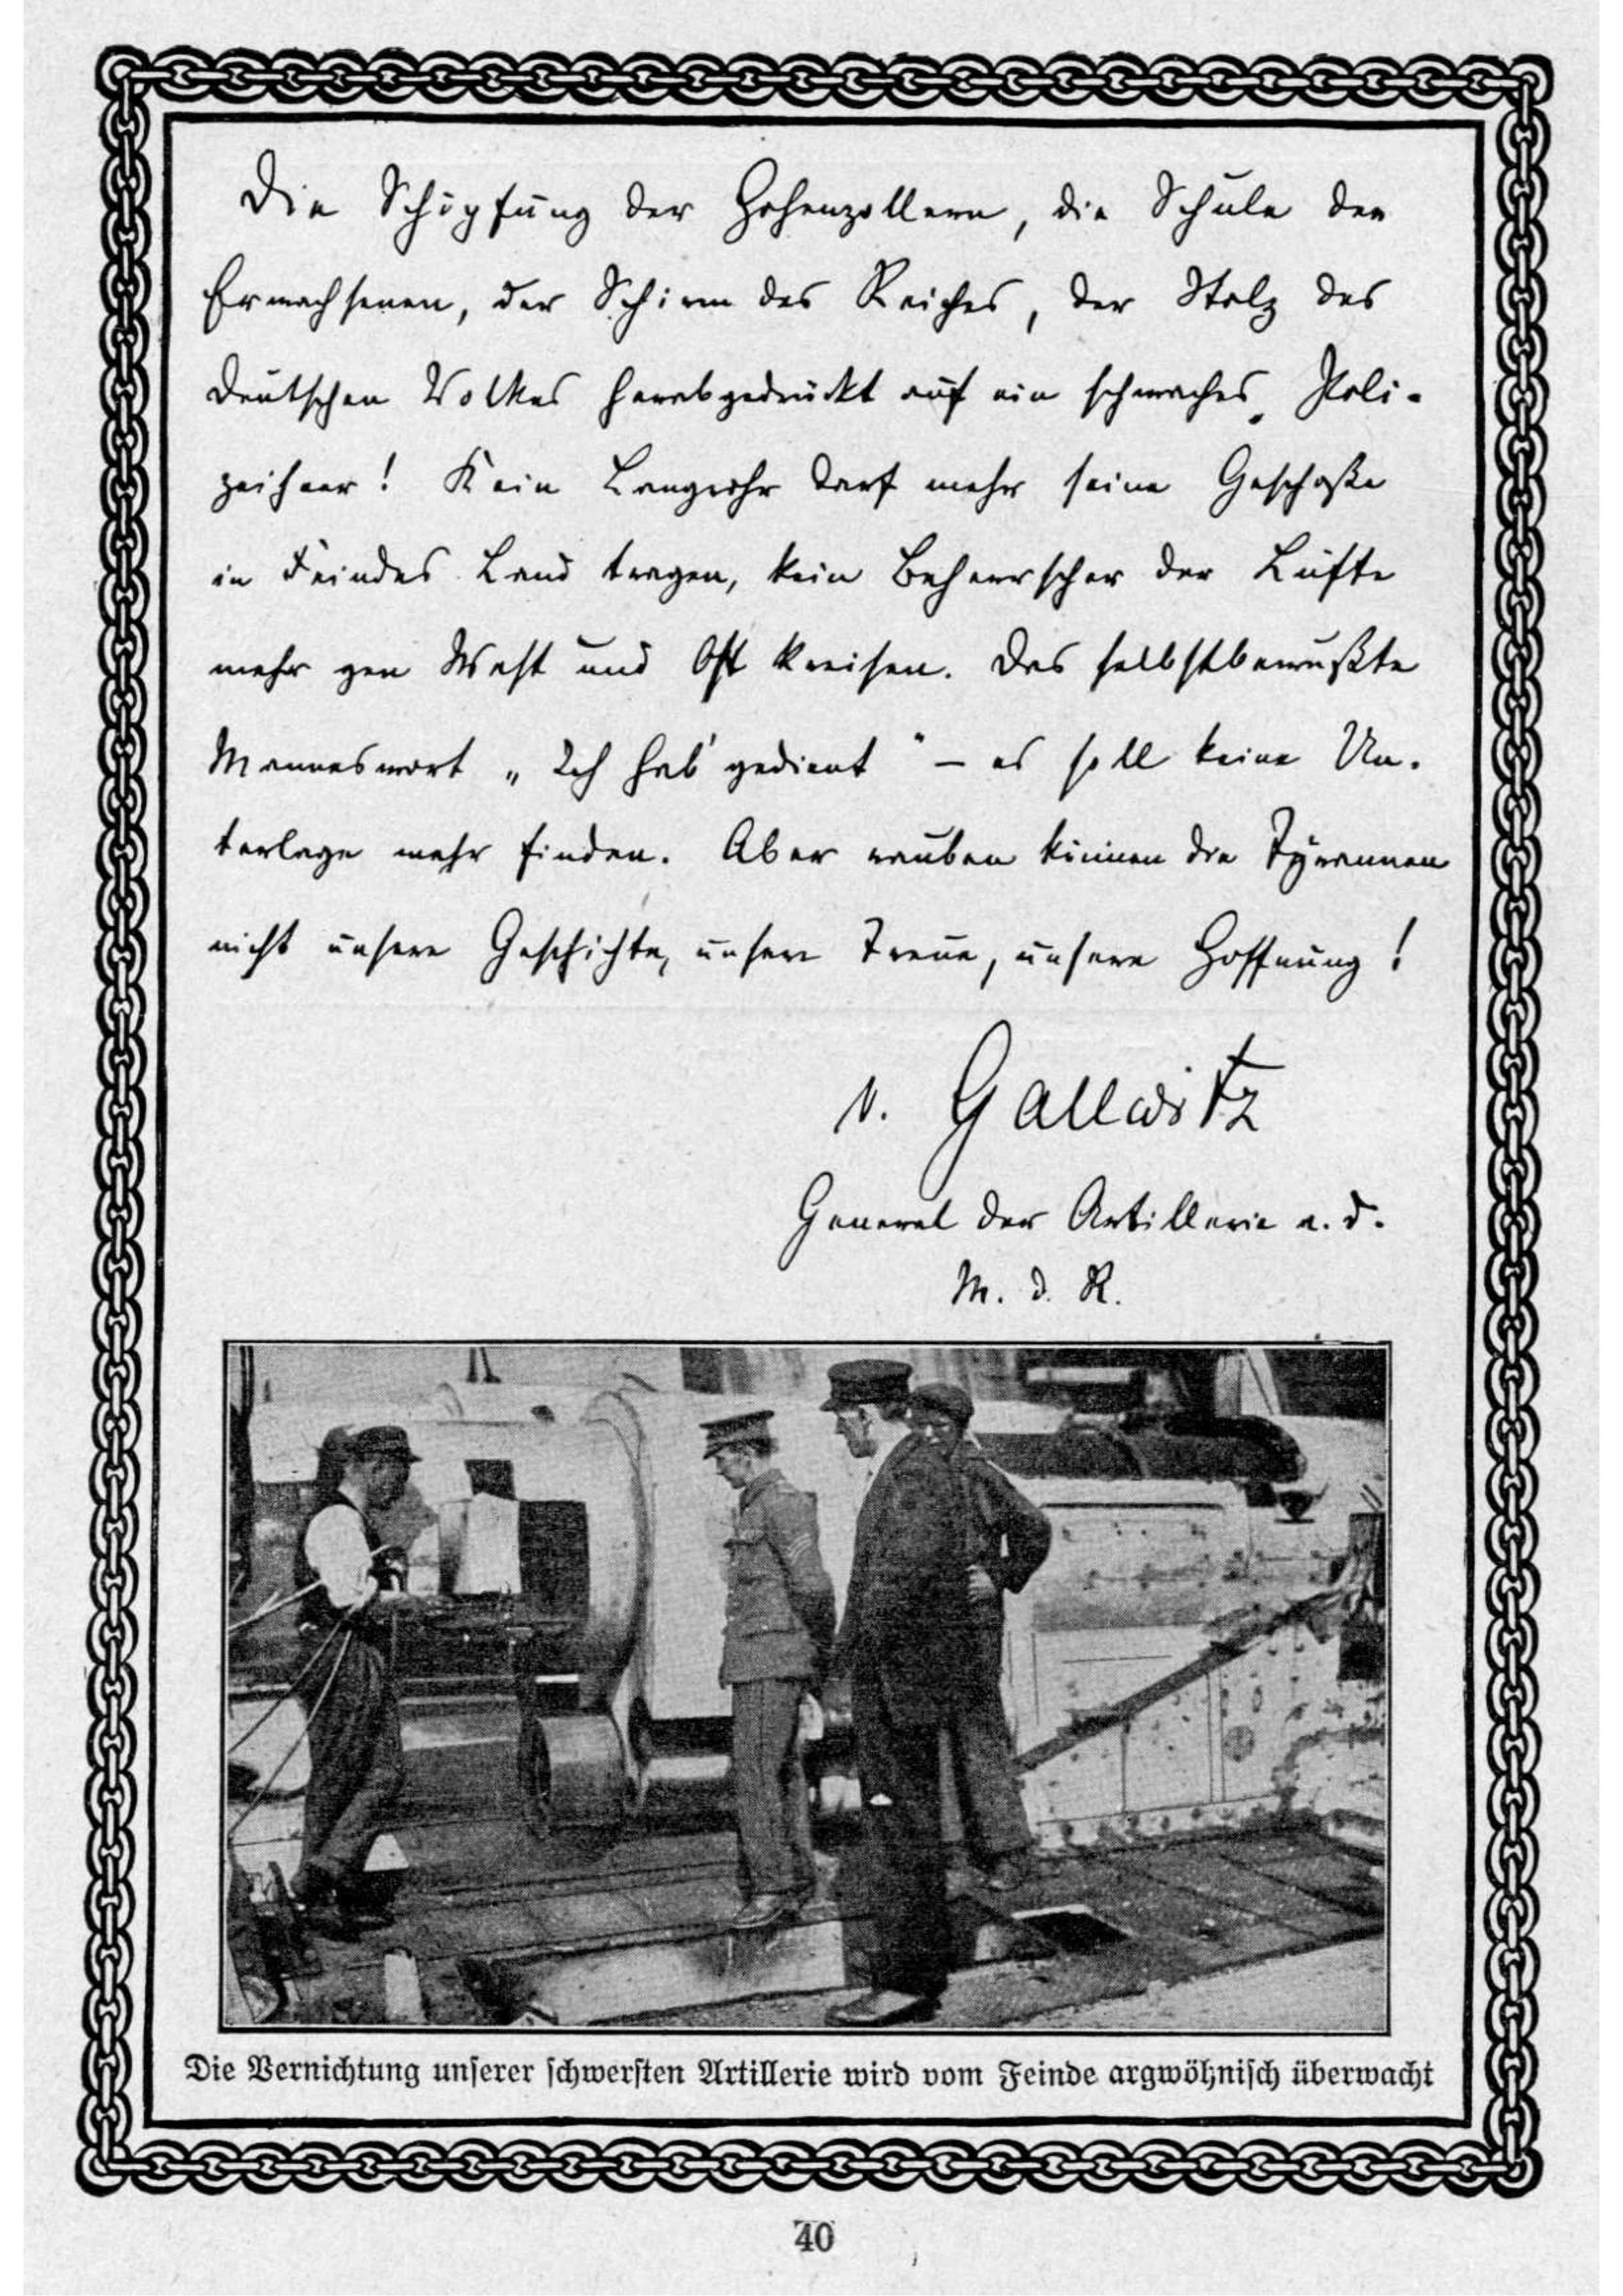 Die Schöpfung der Hohenzollern, die Schule der
Erwachsenen, der Schirm des Reiches, der Stolz des
deutschen Volkes herabgedrückt auf ein schwaches Poli-
zeiheer! Kein Langrohr darf mehr seine Geschoße
in Feindes Land tragen, kein Beherrscher der Lüfte
mehr gen West und Ost kreisen. Das selbstbewußte
Manneswort „Ich hab' gedient" – es soll keine Un-
terlage mehr finden. Aber rauben können die Tyrannen
nicht unsere Geschichte, unsere Treue, unsere Hoffnung!
v. Gallwitz
General der Artillerie a. D.
M. d. R.
Die Vernichtung unserer schwersten Artillerie wird vom Feinde argwöhnisch überwacht
40